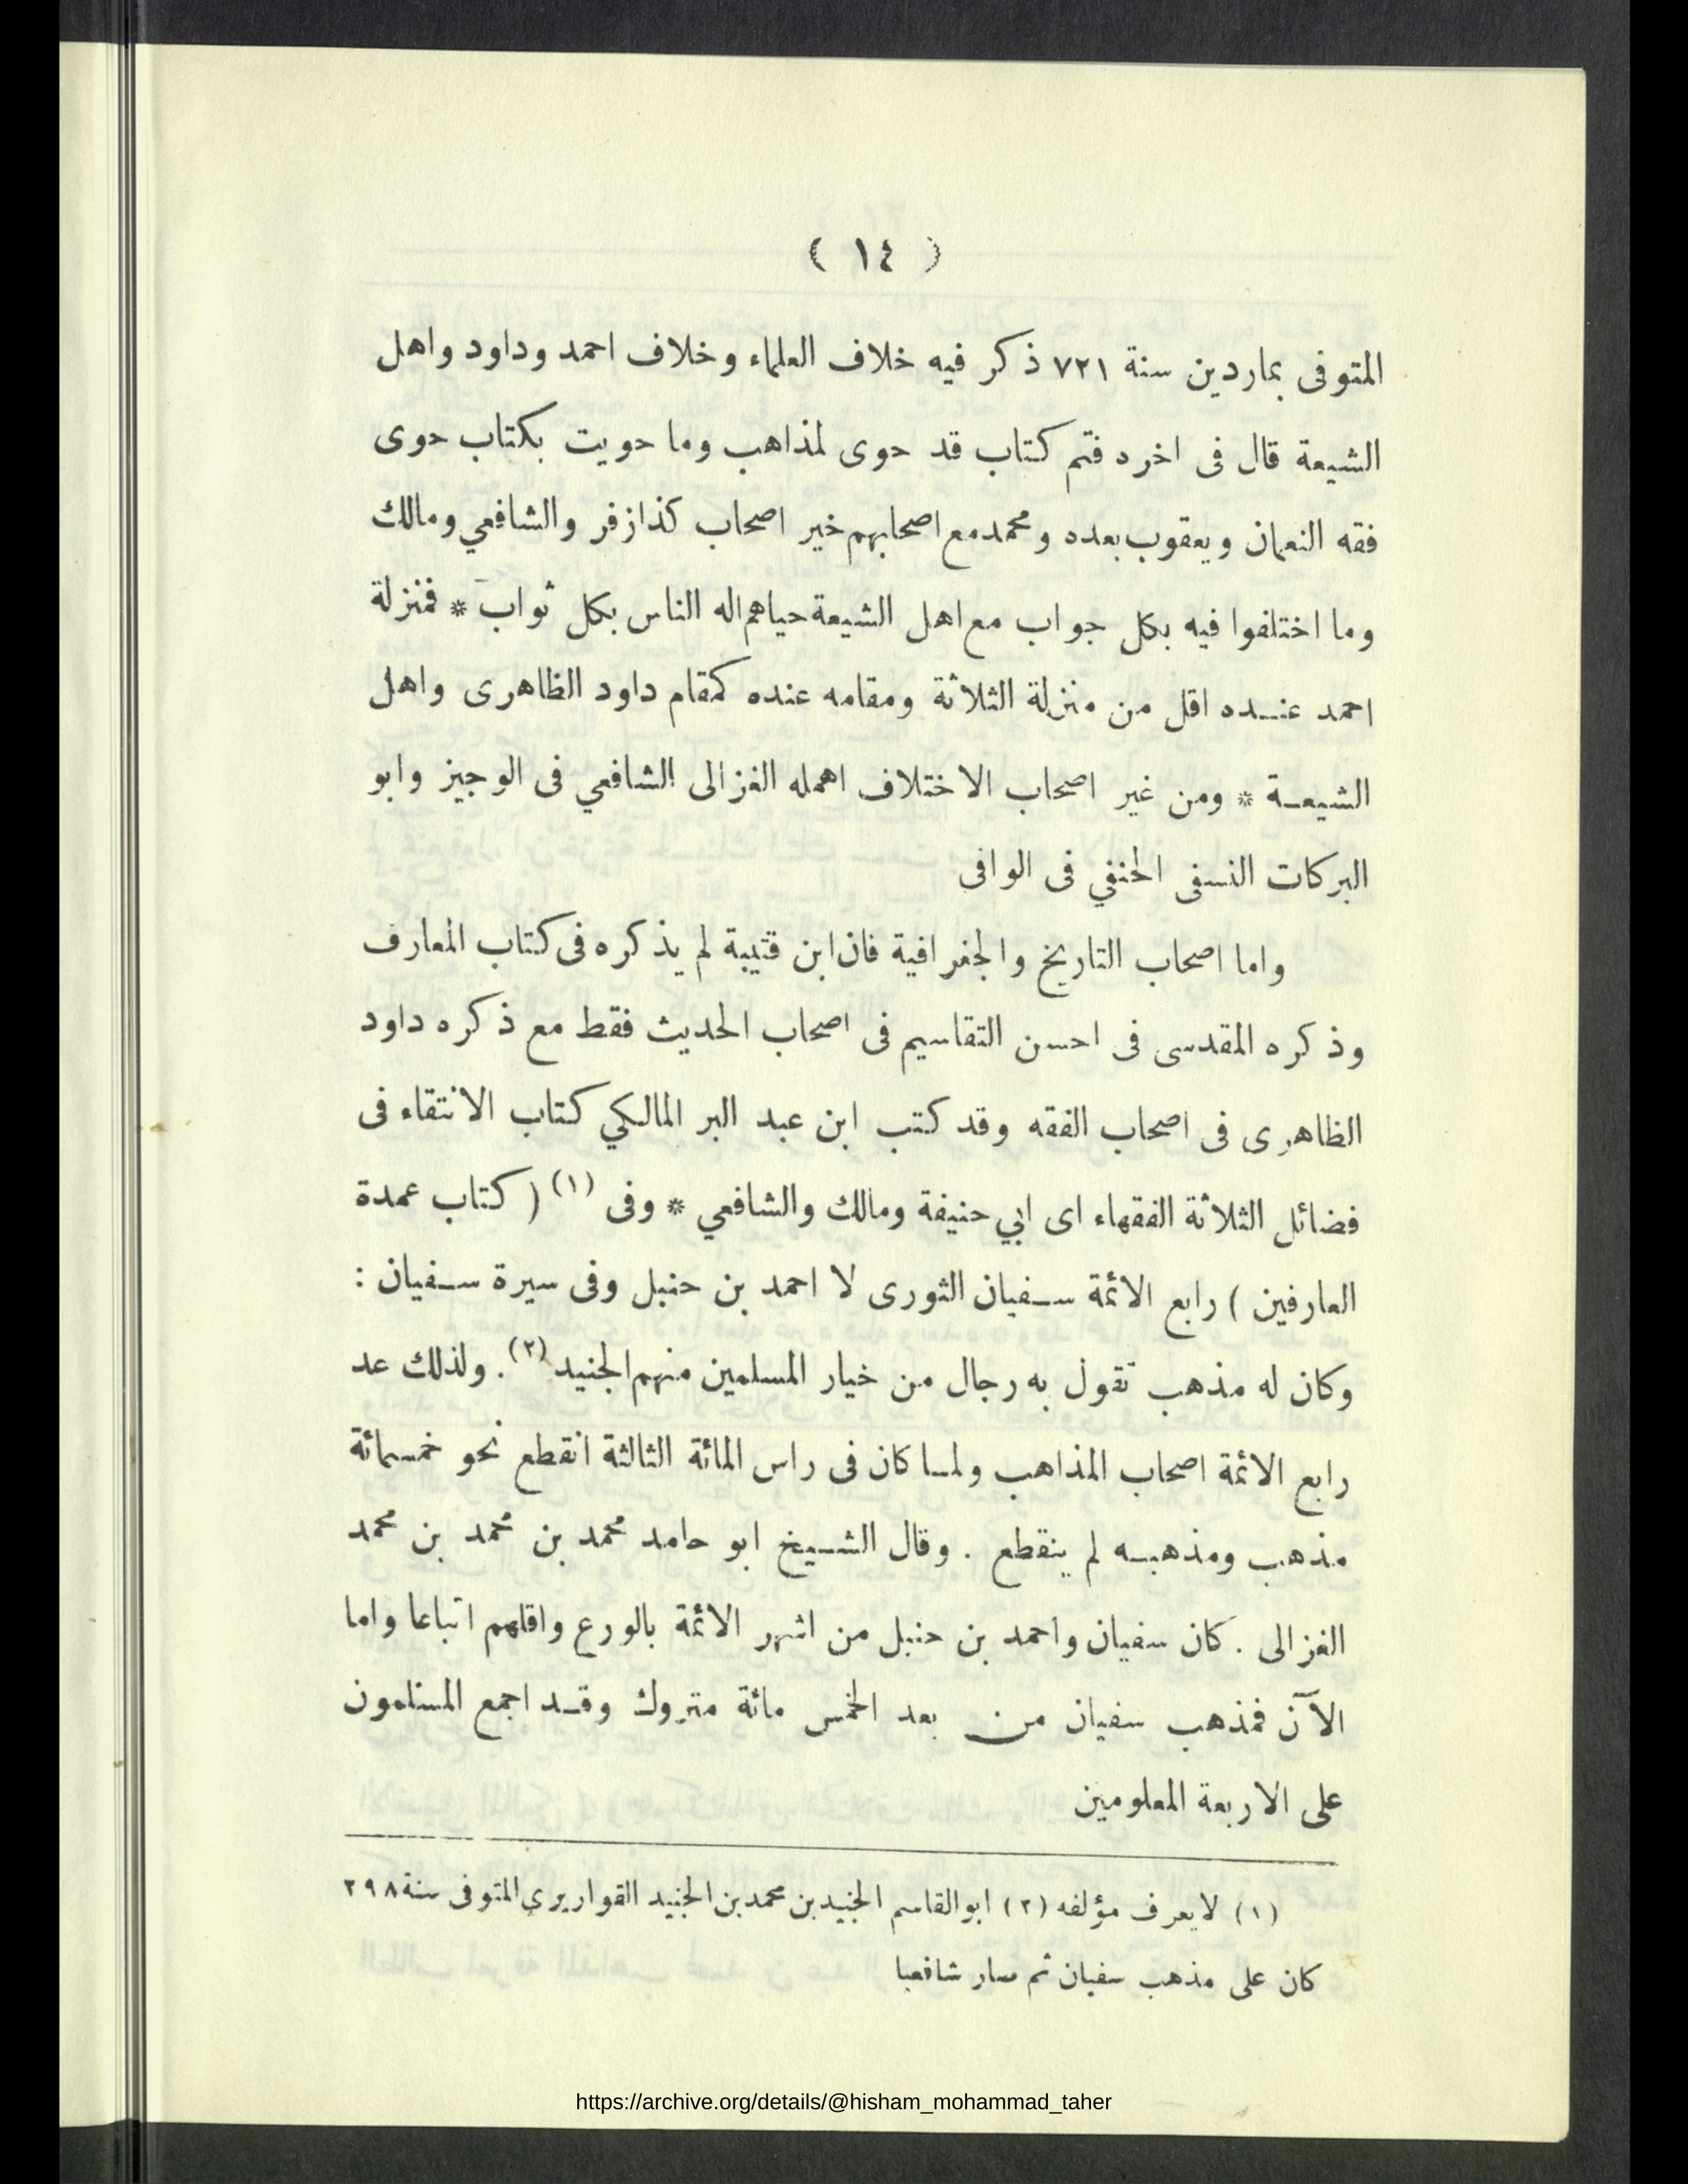 ( ١٤ )
المتوفى بماردين سنة ٧٢١ ذكر فيه خلاف العلماء وخلاف احمد وداود واهل
الشيعة قال فى اخره فتم كتاب قد حوى لمذاهب وما حويت بكتاب حوى
فقه النعمان ويعقوب بعده ومحمد مع اصحابهم خير اصحاب كذا زفر والشافعي ومالك
وما اختلفوا فيه بكل جواب مع اهل الشيعة حياهم اله الناس بكل ثواب * فمنزلة
احمد عنده اقل من منزلة الثلاثة ومقامه عنده كمقام داود الظاهرى واهل
الشيعة * ومن غير اصحاب الاختلاف اهمله الغزالى الشافعي فى الوجيز وابو
البركات النسفى الحنفي فى الوافى
واما اصحاب التاريخ والجغرافية فان ابن قتيبة لم يذكره فى كتاب المعارف
وذكره المقدسى فى احسن التقاسيم فى اصحاب الحديث فقط مع ذكره داود
الظاهرى فى اصحاب الفقه وقد كتب ابن عبد البر المالكي كتاب الانتقاء فى
فضائل الثلاثة الفقهاء اى ابي حنيفة ومالك والشافعي * وفى (١) ( كتاب عمدة
العارفين ) رابع الائمة سفيان الثورى لا احمد بن حنبل وفى سيرة سفيان :
وكان له مذهب تقول به رجال من خيار المسلمين منهم الجنيد (٢) . ولذلك عد
رابع الائمة اصحاب المذاهب ولما كان فى راس المائة الثالثة انقطع نحو خمسمائة
مذهب ومذهبه لم ينقطع . وقال الشيخ ابو حامد محمد بن محمد بن محمد
الغزالى . كان سفيان واحمد بن حنبل من اشهر الائمة بالورع واقلهم اتباعا واما
الآن فمذهب سفيان من بعد الخمس مائة متروك وقد اجمع المسلمون
على الاربعة المعلومين
(١) لا يعرف مؤلفه (٢) ابو القاسم الجنيد بن محمد بن الجنيد القواريري المتوفى سنة ٢٩٨
كان على مذهب سفيان ثم صار شافعيا
https://archive.org/details/@hisham_mohammad_taher